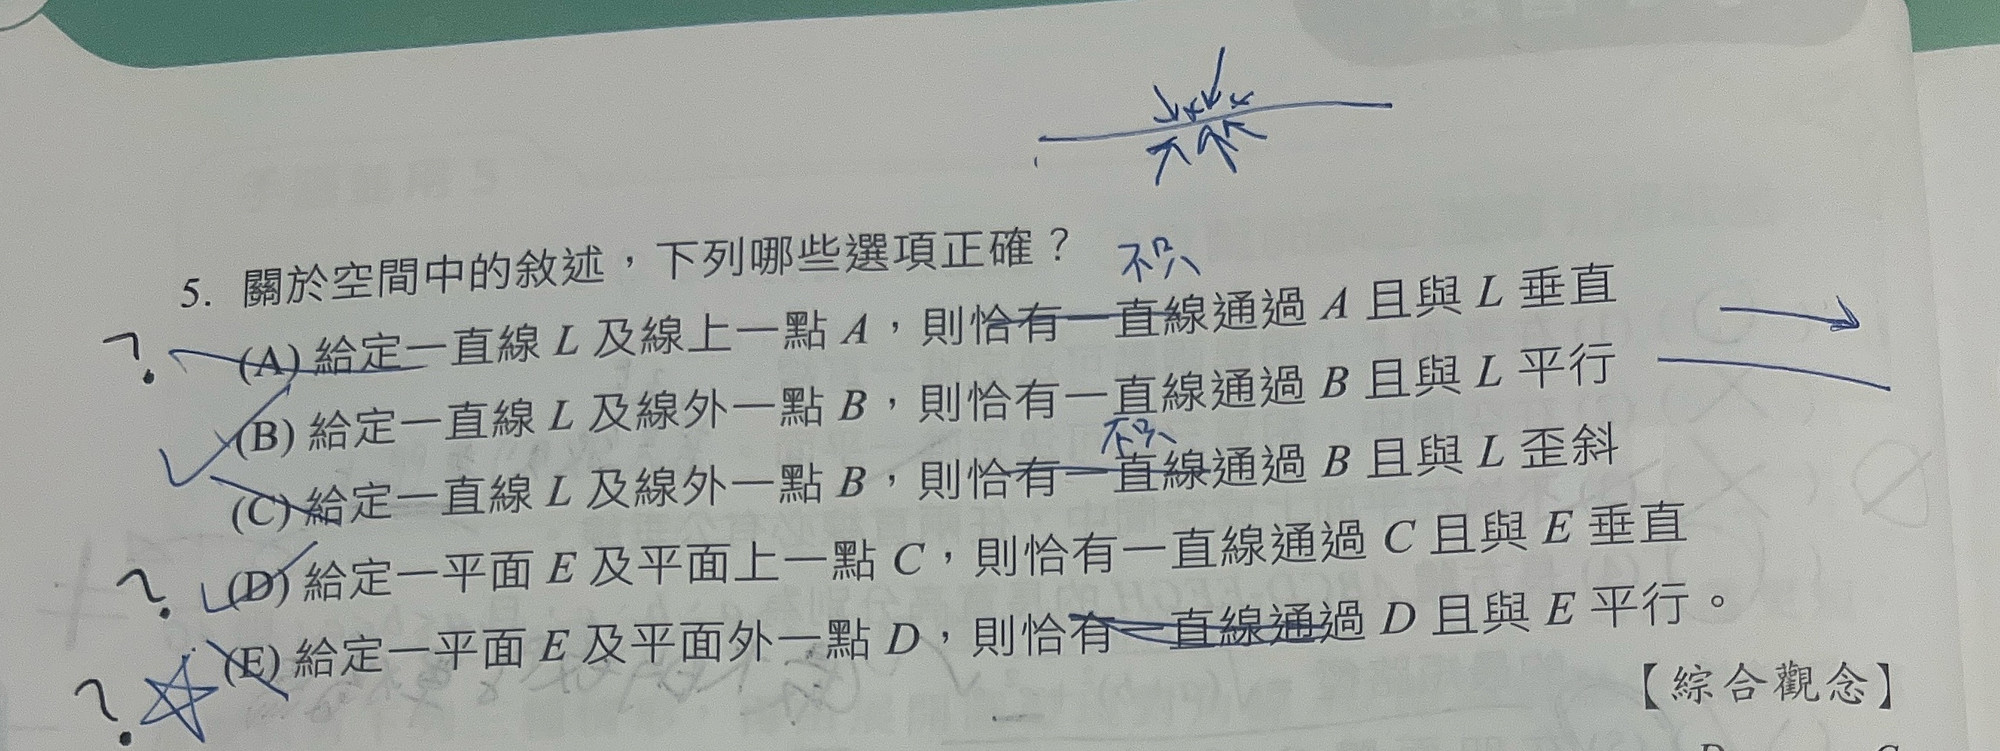 5. 關於空間中的敘述，下列哪些選項正確？
不只
? (A) 給定一直線 L 及線上一點 A，則恰有一直線通過 A 且與 L 垂直
(B) 給定一直線 L 及線外一點 B，則恰有一直線通過 B 且與 L 平行
不只
(C) 給定一直線 L 及線外一點 B，則恰有一直線通過 B 且與 L 歪斜
? (D) 給定一平面 E 及平面上一點 C，則恰有一直線通過 C 且與 E 垂直
? (E) 給定一平面 E 及平面外一點 D，則恰有一直線通過 D 且與 E 平行。
【綜合觀念】